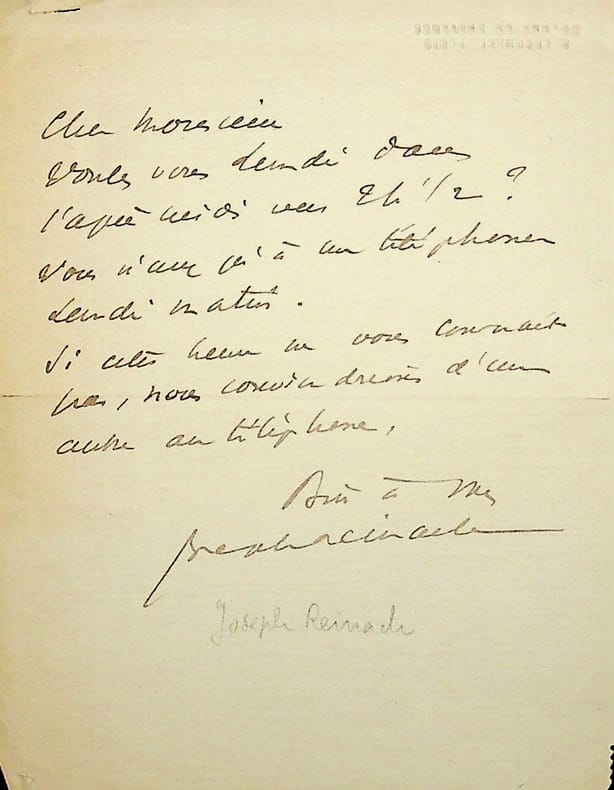 Cher Monsieur
Voulez vous Lundi dans
l'après midi vers 2h 1/2 ?
Vous n'avez qu'à me téléphoner
Lundi matin.
Si cette heure ne vous convenait
pas, nous conviendrions d'une
autre au téléphone,
Bien à vous
Joseph Reinach
Joseph Reinach